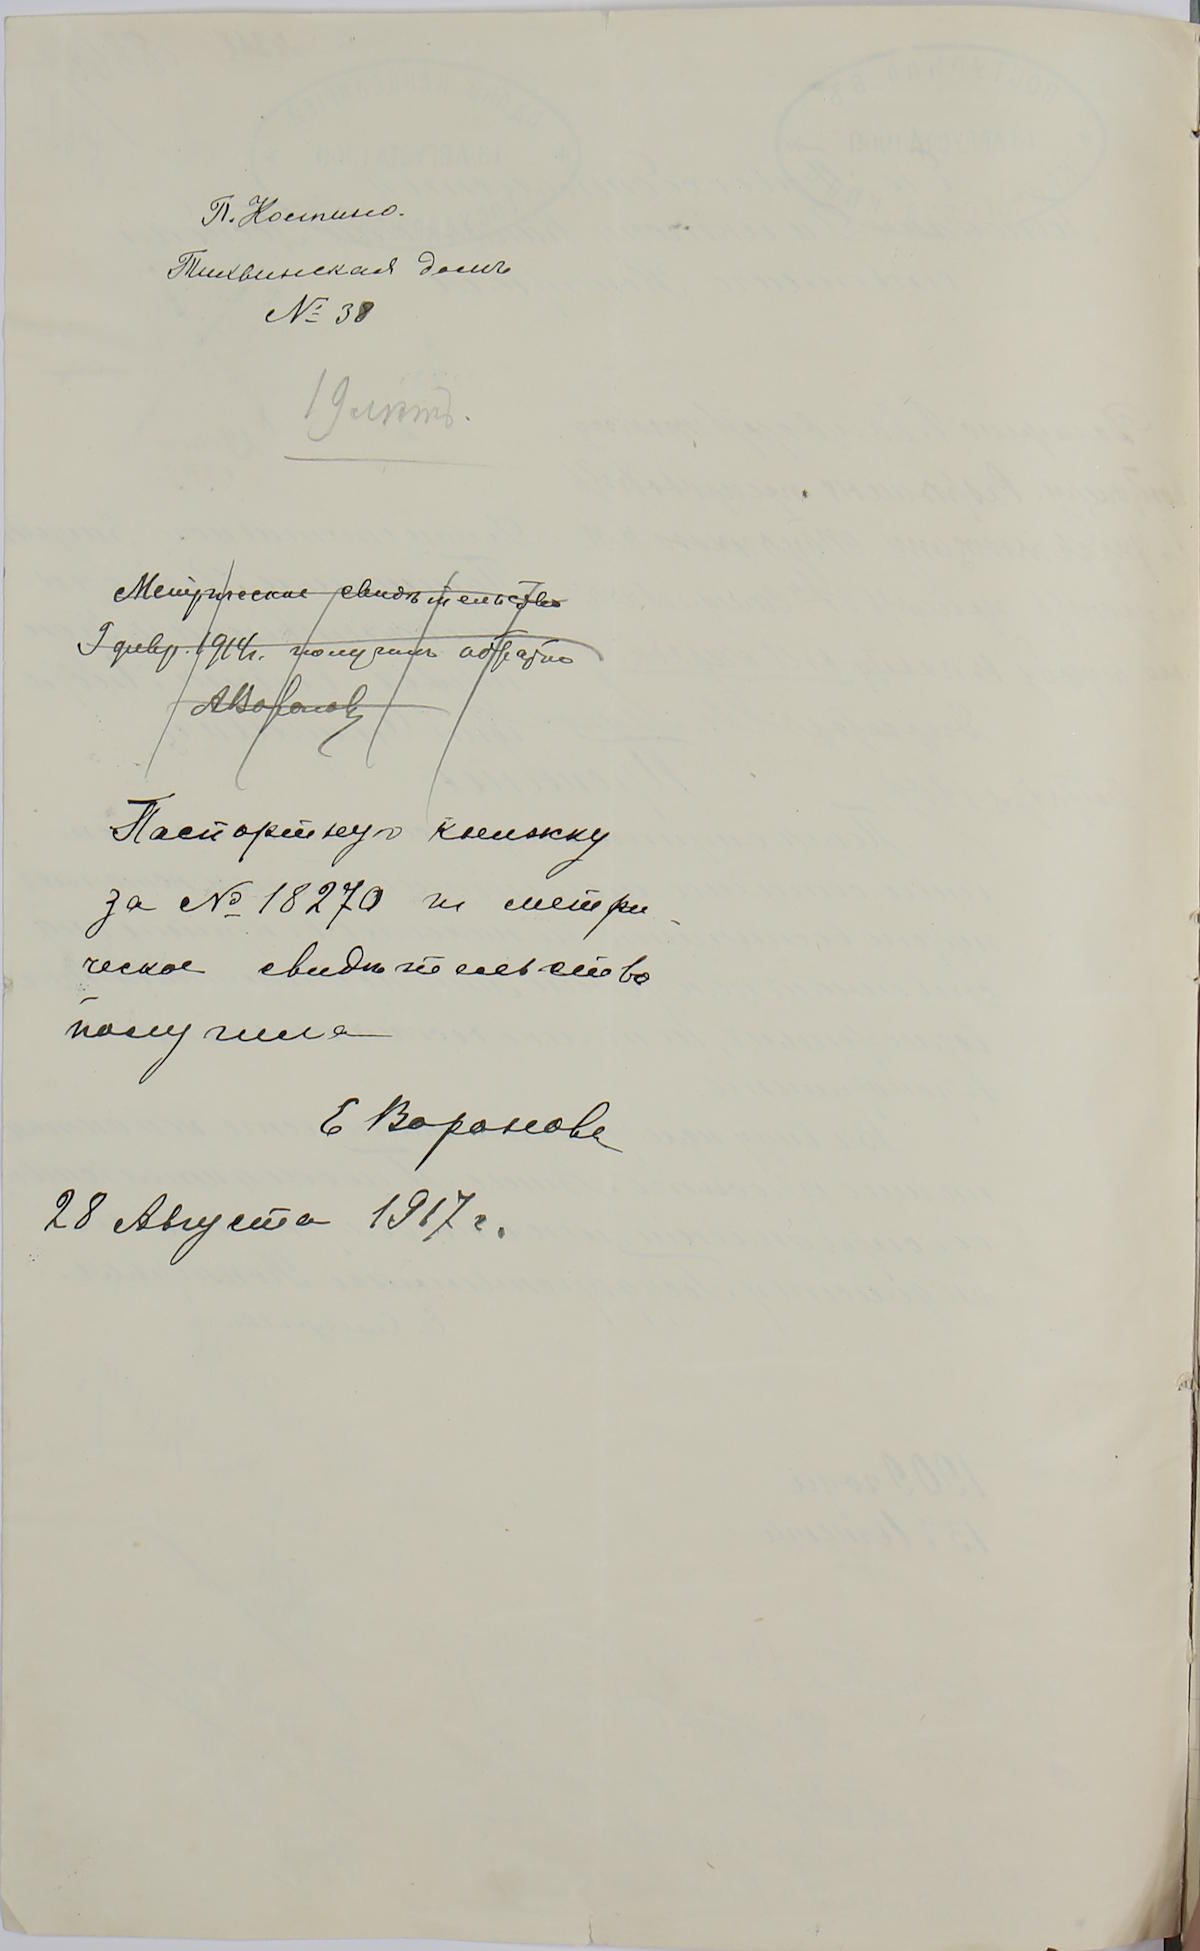 П. Костино.
Тихвинская домъ
№ 38
19 лѣтъ.
Метрическое свидѣтельство
9 февр. 1914 г. получилъ обратно
АВоронов
Паспортную книжку
за № 18270 и метри
ческое свидѣтельство
получила
Е Воронова
28 Августа 1917 г.